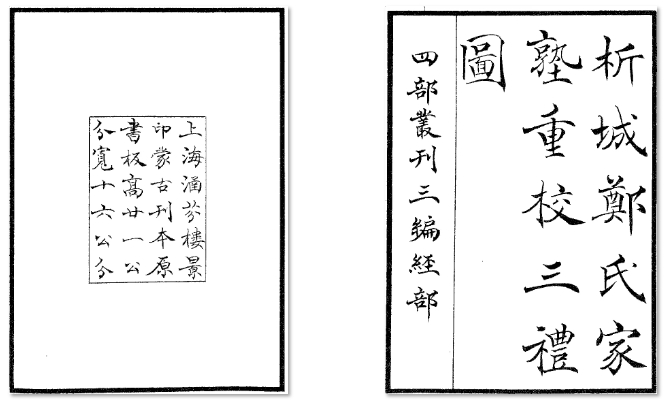 析城鄭氏家
塾重校三禮
圖
四部叢刊三編經部
上海涵芬樓景
印蒙古刊本原
書板高廿一公
分寬十六公分